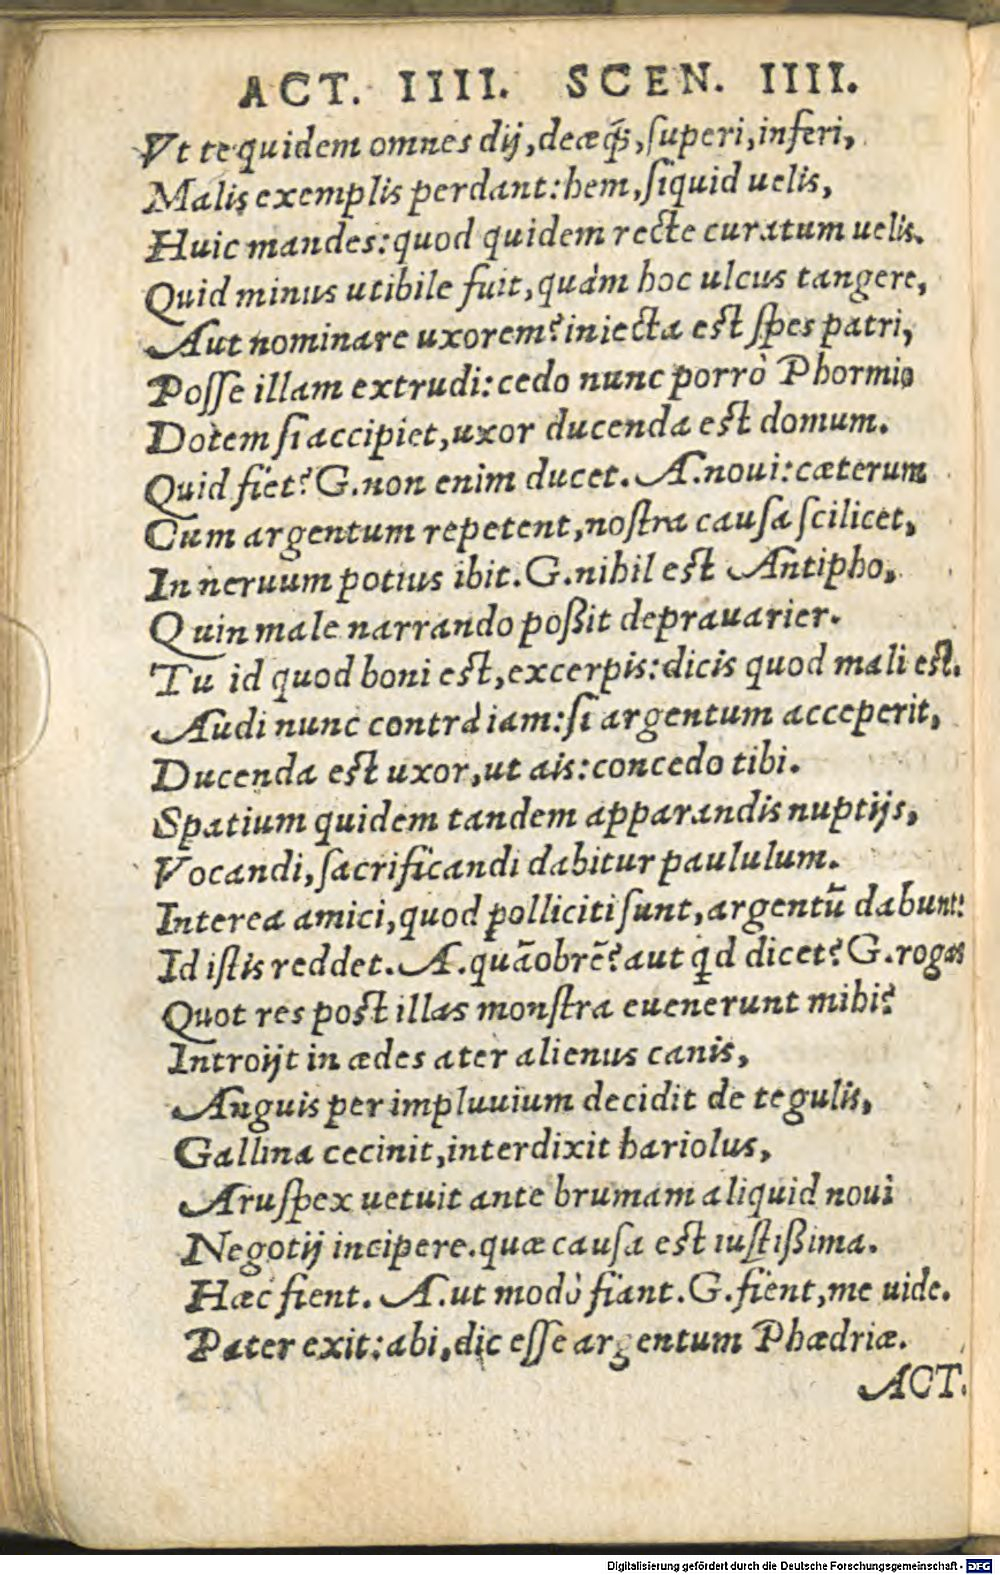 ACT. IIII. SCEN. IIII.
Vt te quidem omnes dij, deæq́;, ſuperi, inferi,
Malis exemplis perdant: hem, ſiquid uelis,
Huic mandes: quod quidem recte curatum uelis.
Quid minus utibile fuit, quàm hoc ulcus tangere,
Aut nominare uxorem? iniecta est ſpes patri,
Poſſe illam extrudi: cedo nunc porrò Phormio
Dotem ſi accipiet, uxor ducenda est domum.
Quid fiet? G. non enim ducet. A. noui: cæterum
Cum argentum repetent, noſtra cauſa ſcilicet,
In neruum potius ibit. G. nihil est Antipho,
Quin male narrando poßit deprauarier.
Tu id quod boni est, excerpis: dicis quod mali est.
Audi nunc contrà iam: ſi argentum acceperit,
Ducenda est uxor, ut ais: concedo tibi.
Spatium quidem tandem apparandis nuptijs,
Vocandi, ſacrificandi dabitur paululum.
Interea amici, quod polliciti ſunt, argentũ dabunt:
Id iſtis reddet. A. quãobrẽ? aut qd dicet? G. rogas
Quot res post illas monſtra euenerunt mihi?
Introijt in ædes ater alienus canis,
Anguis per impluuium decidit de tegulis,
Gallina cecinit, interdixit hariolus,
Aruſpex uetuit ante brumam aliquid noui
Negotij incipere. quæ cauſa est iuſtißima.
Hæc fient. A. ut modò fiant. G. fient, me uide.
Pater exit: abi, dic eſſe argentum Phædriæ.
ACT.
Digitalisierung gefördert durch die Deutsche Forschungsgemeinschaft - DFG